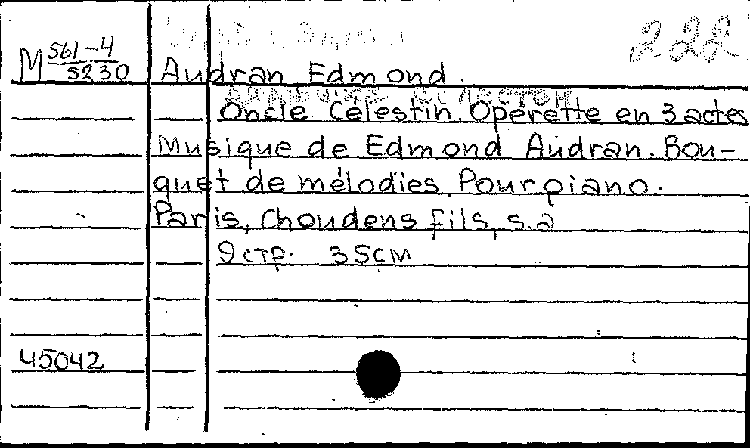 222
M 561-4/5230
Audran Edmond.
Oncle Célestin. Opérette en 3 actes
Musique de Edmond Audran. Bou-
quet de mélodies. Pour piano.
Paris, Choudens fils, s.a
9 стр. 35см
45042